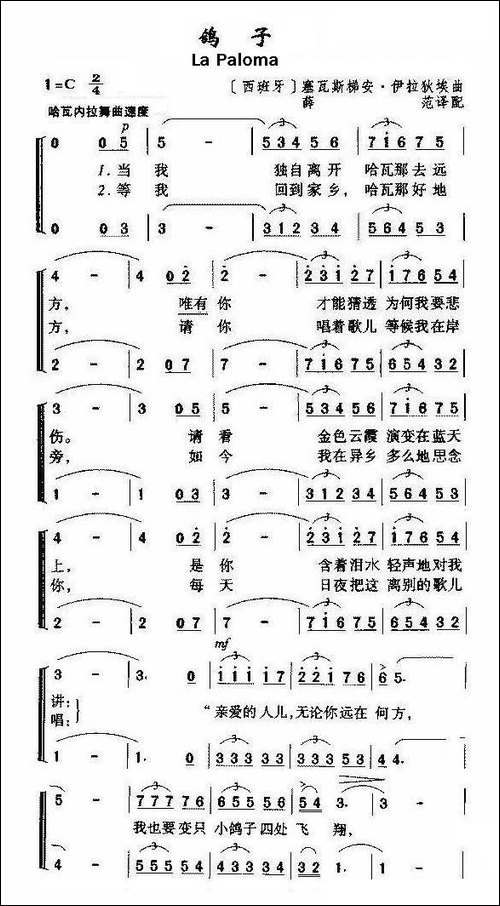 鸽 子
La Paloma
1=C 2/4
〔西班牙〕塞瓦斯梯安·伊拉狄埃曲
薛 范译配
哈瓦内拉舞曲速度
p
0 0 5 | 5 - | 5 3 4 5 6 | 7 1 6 7 5
1.当 我 独自离开 哈瓦那去远
2.等 我 回到家乡, 哈瓦那好地
0 0 3 | 3 - | 3 1 2 3 4 | 5 6 4 5 3
4 - | 4 0 2 | 2 - | 2 3 1 2 7 | 1 7 6 5 4
方, 唯有 你 才能猜透 为何我要悲
方, 请 你 唱着歌儿 等候我在岸
2 - | 2 0 7 | 7 - | 7 1 6 7 5 | 6 5 4 3 2
3 - | 3 0 5 | 5 - | 5 3 4 5 6 | 7 1 6 7 5
伤。 请 看 金色云霞 演变在蓝天
旁, 如 今 我在异乡 多么地思念
1 - | 1 0 3 | 3 - | 3 1 2 3 4 | 5 6 4 5 3
4 - | 4 0 2 | 2 - | 2 3 1 2 7 | 1 7 6 5 4
上, 是 你 含着泪水 轻声地对我
你, 每 天 日夜把这 离别的歌儿
2 - | 2 0 7 | 7 - | 7 1 6 7 5 | 6 5 4 3 2
mf
3 - | 3. 0 | 1 1 1 1 7 | 2 2 1 7 6 | 6 5.
讲:
唱:
“亲爱的人儿,无论你远在 何方,
1 - | 1. 0 | 3 3 3 3 3 | 3 3 3 5 3 | 4 4.
5 - | 7 7 7 7 6 | 6 5 5 5 6 | 5 4 3. | 3 -
我也要变只 小鸽子四处 飞 翔,
4 - | 5 5 5 5 4 | 4 3 3 3 4 | 3 2 1. | 1 -